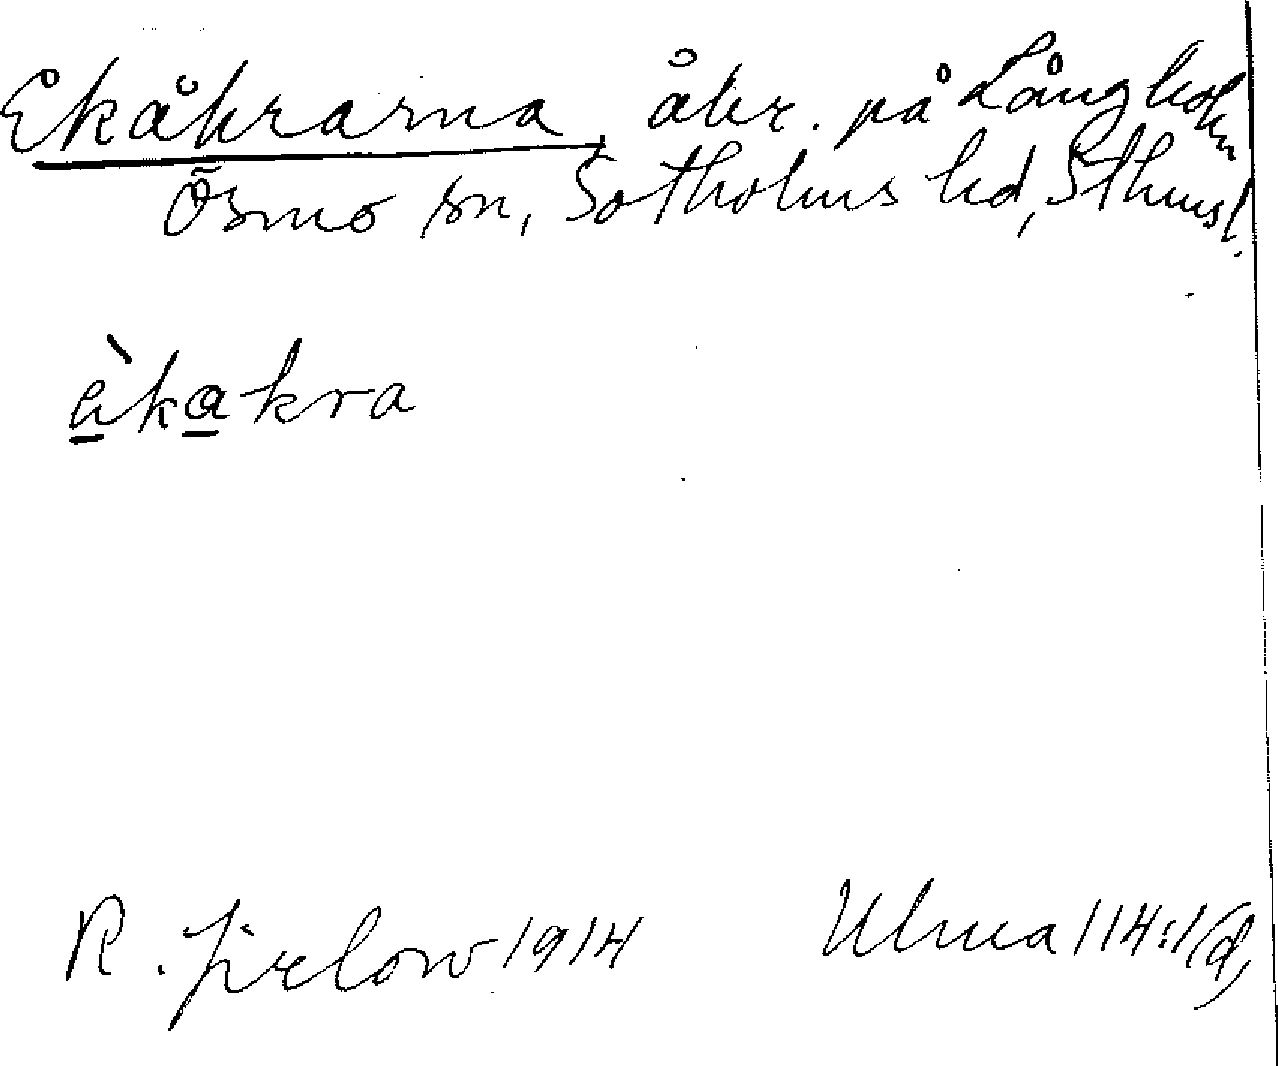 Ekåkrarna, åkr. på Långholmen
Ösmo sn, Sotholms hd, Sthmsl.
èkakra
R. Jirlow 1914 Ulma 114:1(d)